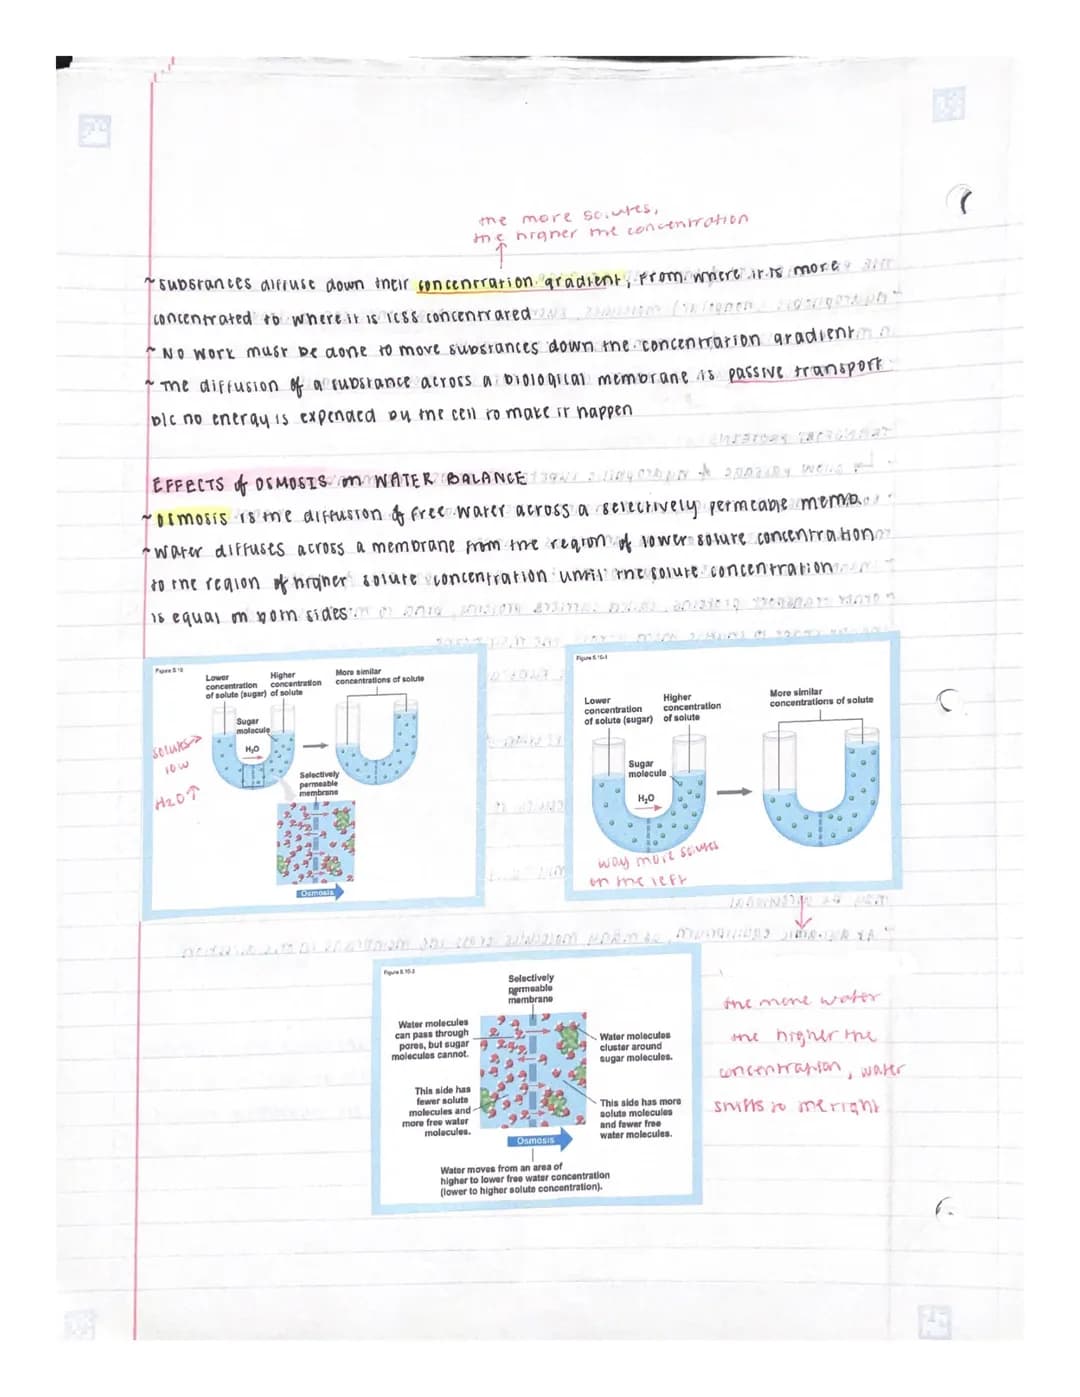 the more solutes,
the higher the concentration
~ substances diffuse down their concentration gradient, from where it is more
concentrated to where it is less concentrated
~ No work must be done to move substances down the concentration gradient
~ The diffusion of a substance across a biological membrane is passive transport
b/c no energy is expended by the cell to make it happen
EFFECTS of OSMOSIS on WATER BALANCE
~ Osmosis is the diffusion of free water across a selectively permeable memb.
~ Water diffuses across a membrane from the region of lower solute concentration
to the region of higher solute concentration until the solute concentration
is equal on both sides
Figure 5.10
Lower
concentration
of solute (sugar)
Higher
concentration
of solute
More similar
concentrations of solute
Sugar
molecule
H₂O
Selectively
permeable
membrane
Osmosis
solutes
low
H2O↑
Figure 5.10-1
Lower
concentration
of solute (sugar)
Higher
concentration
of solute
More similar
concentrations of solute
Sugar
molecule
H₂O
way more solutes
on the left
Figure 5.10-2
Selectively
permeable
membrane
Water molecules
can pass through
pores, but sugar
molecules cannot.
This side has
fewer solute
molecules and
more free water
molecules.
Water molecules
cluster around
sugar molecules.
This side has more
solute molecules
and fewer free
water molecules.
Osmosis
Water moves from an area of
higher to lower free water concentration
(lower to higher solute concentration).
the more water
the higher the
concentration, water
shifts to the right